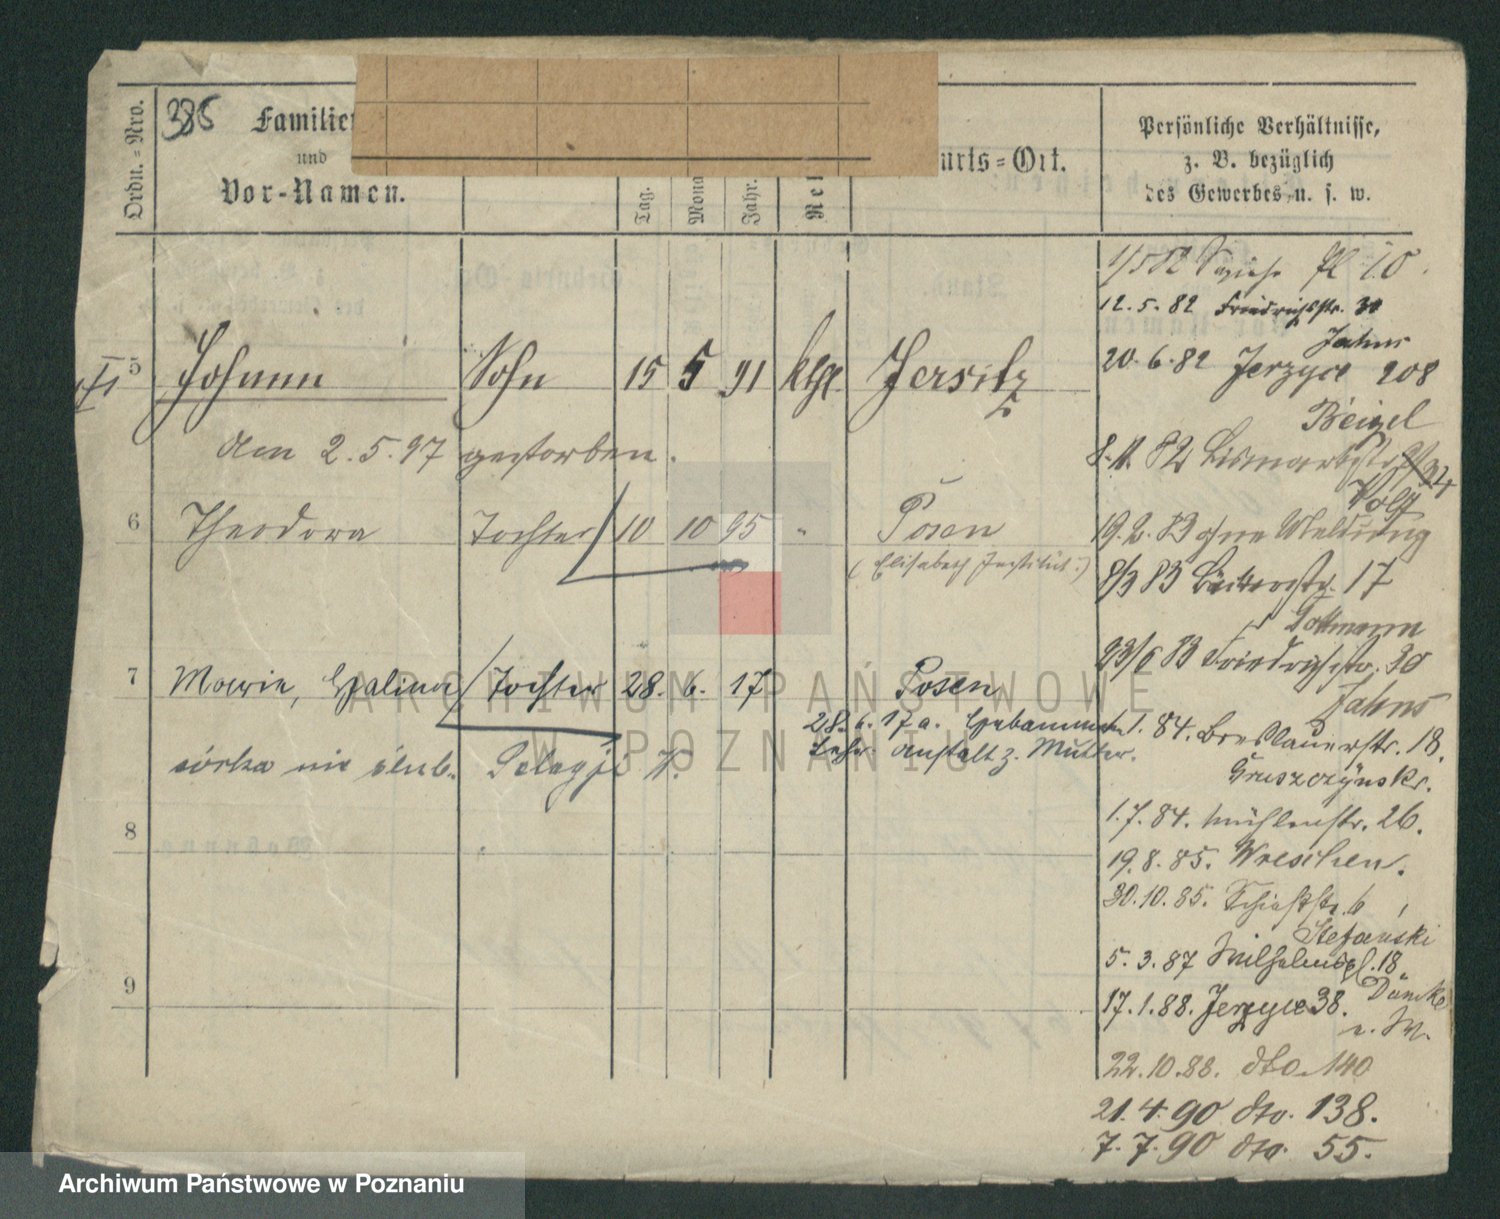 Ordn.=Nro.
386
Familien
und
Vor-Namen.
Tag.
Mona
Jahr.
Rel
urts=Ort.
Persönliche Verhältnisse,
z. B. bezüglich
des Gewerbes u. s. w.
5 Johann Sohn 15 5 91 kthl. Jersitz
am 2.5.97 gestorben.
6 Theodora Tochter 10 10 95 " Posen
(Elisabeth Institut.)
7 Marie, Halina Tochter 28. 6. 17 Posen
28.6.17 a. Hebammen
Lehr anstalt z. Mutter.
córka nie ślub. Pelagji
8
9
1/5 82 Pl 10
12.5.82 Friedrichstr. 30
Jahns
20.6.82 Jerzyce 208
Beigel
8.11.82 Bismarckstr
19.2.83 ohne Meldung
8/3 83 Bäckerstr. 17
23/6 83 Friedrichstr. 30
Jahns
1.84. Breslauerstr. 18.
Gruszczynski.
1.7.84. Mühlenstr. 26.
19.8.85. Wreschen.
30.10.85. Schießstr. 6
Stefański
5.3.87 Wilhelmspl. 18
17.1.88. Jerzyce 38.
22.10.88. dto. 140
21.4.90 dto. 138.
7.7.90 dto. 55.
ARCHIWUM PAŃSTWOWE
W POZNANIU
Archiwum Państwowe w Poznaniu